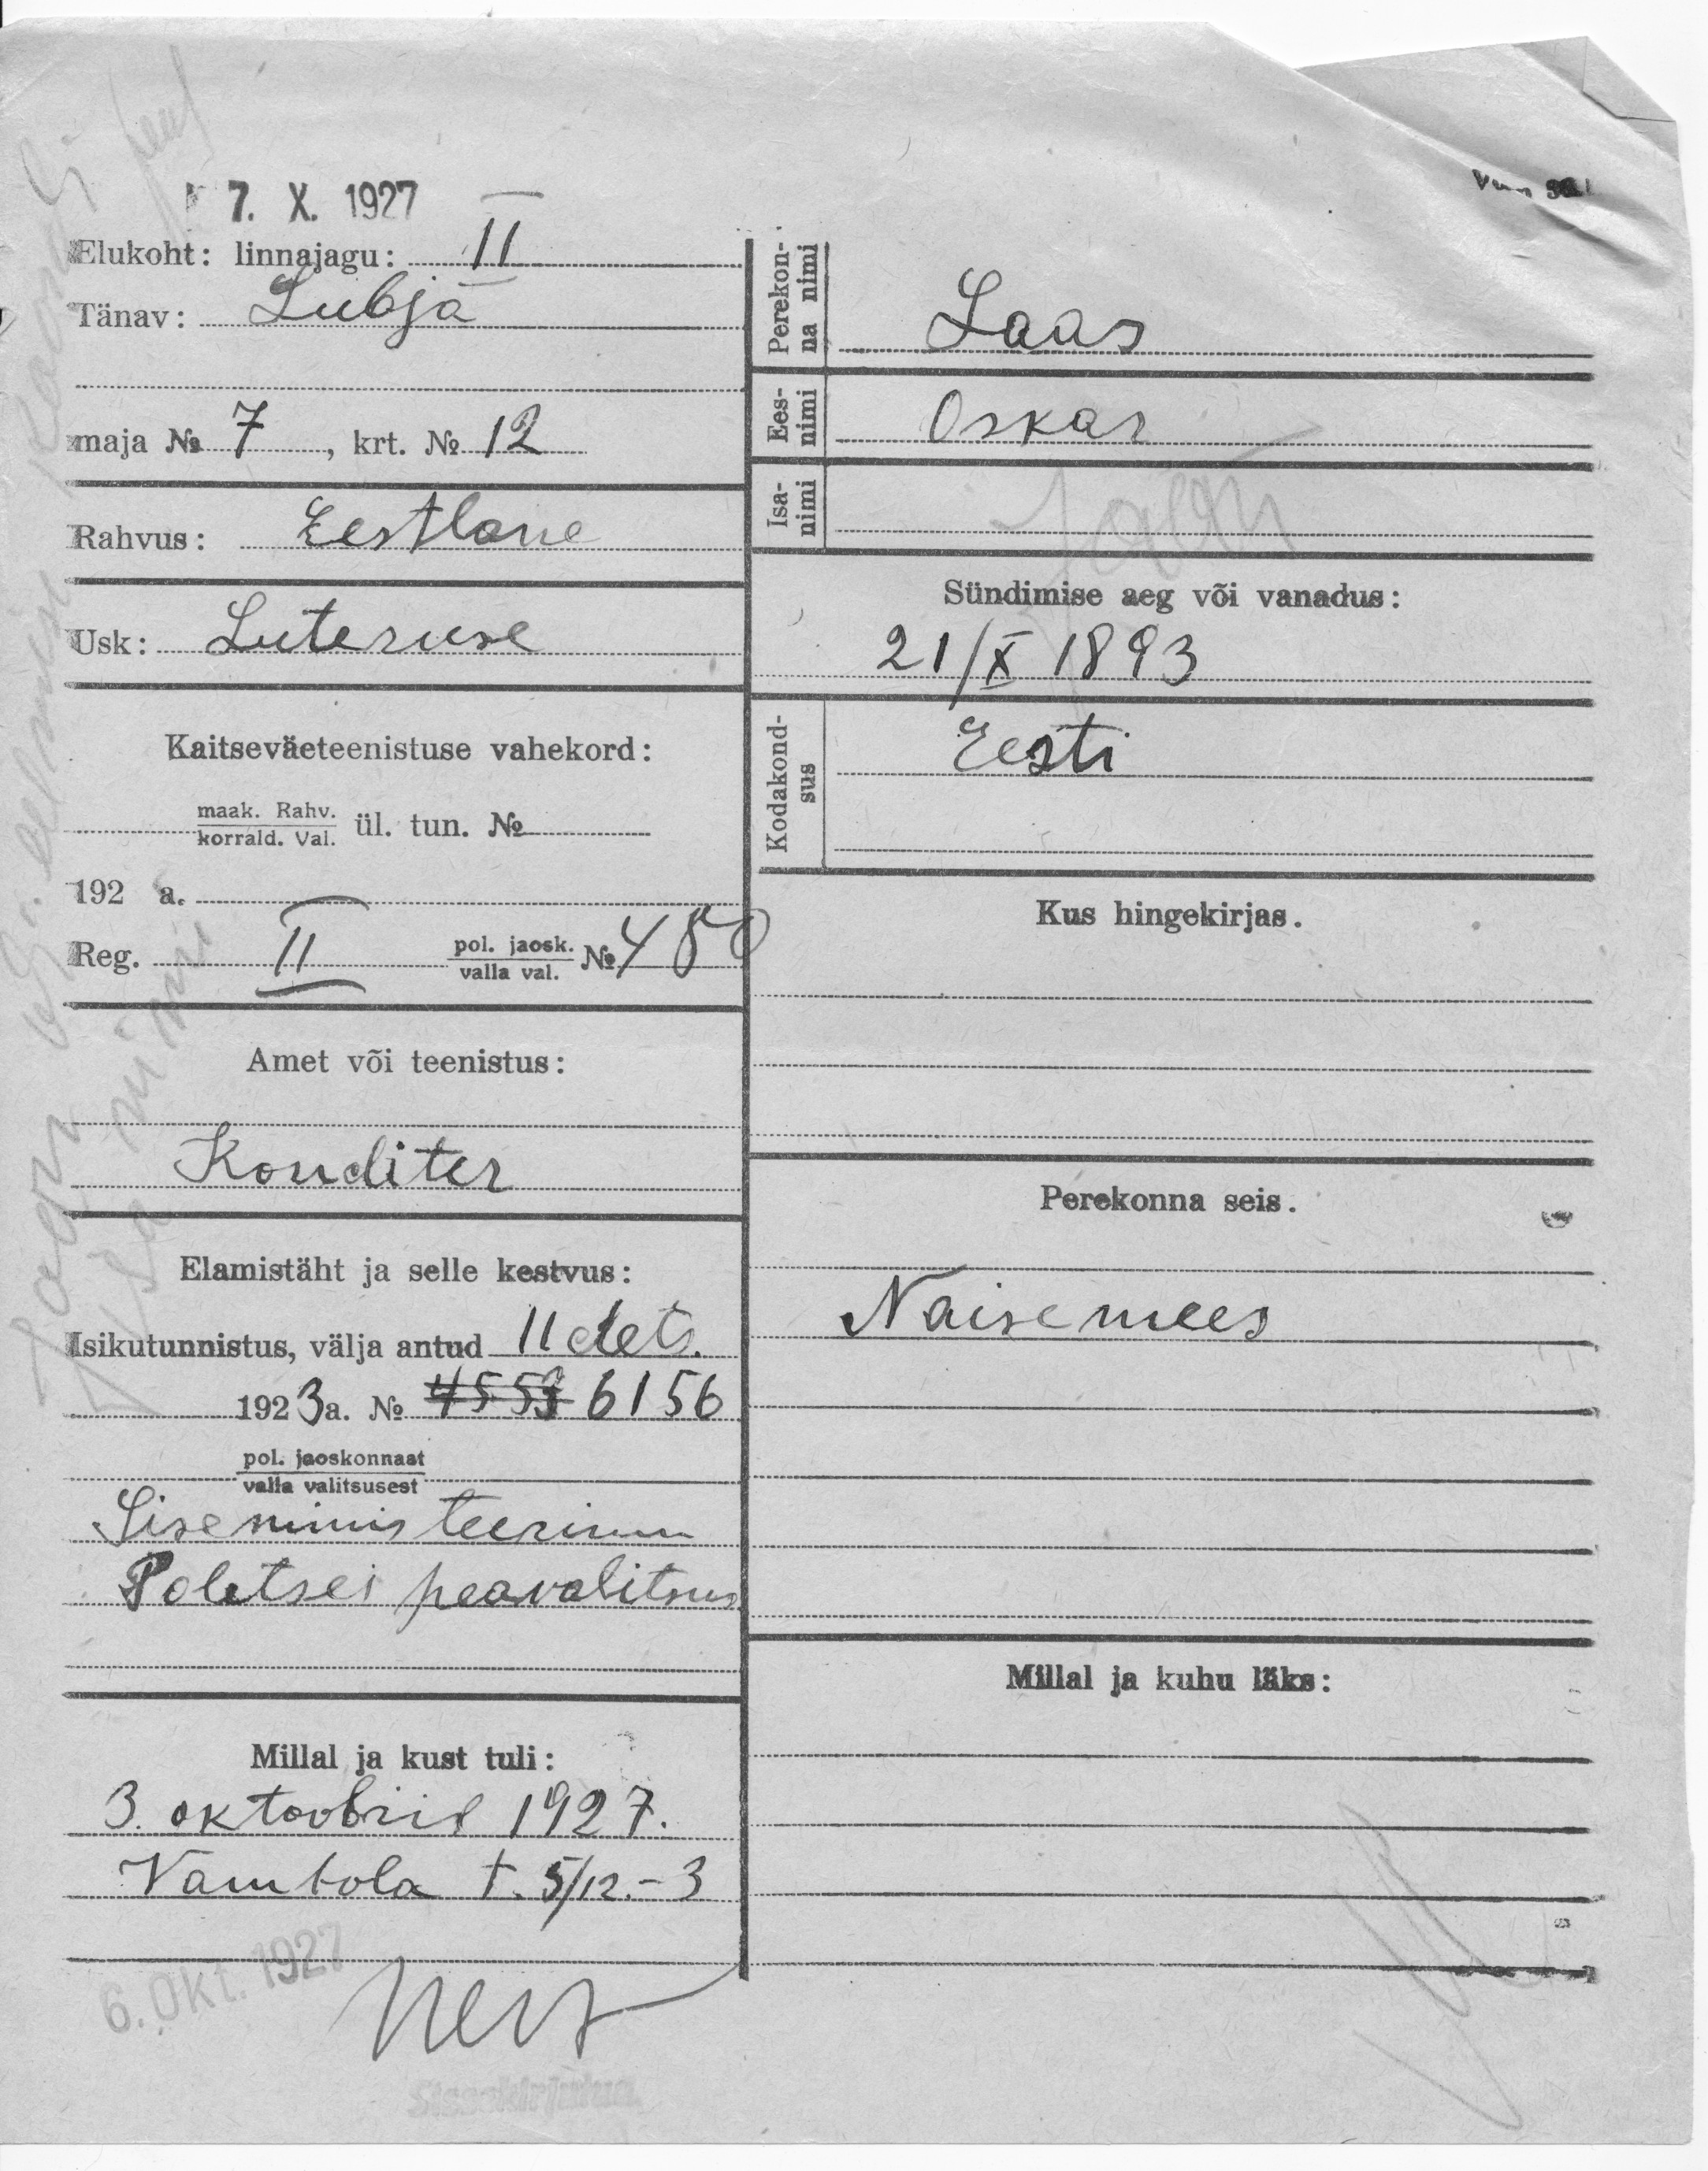 7. X. 1927
Elukoht: linnajagu: II
Tänav: Lubja
maja № 7, krt. № 12
Rahvus: Eestlane
Usk: Luteruse
Kaitseväeteenistuse vahekord:
maak. Rahv.
korrald. Val. ül. tun. №
192 a.
Reg. II pol. jaosk.
valla val. № 480
Amet või teenistus:
Konditer
Elamistäht ja selle kestvus:
Isikutunnistus, välja antud 11 dets.
1923 a. № 4553 6156
pol. jaoskonnast
valla valitsusest
Siseministeerium
Politsei peavalitsus
Millal ja kust tuli:
3. oktoobril 1927.
Vambola t. 5/12.-3
6. OKT. 1927
Sissekirjutud.
Perekon-
na nimi
Laas
Ees-
nimi
Oskar
Isa-
nimi
Jaan
Sündimise aeg või vanadus:
21/X 1893
Kodakond-
sus
Eesti
Kus hingekirjas.
Perekonna seis.
Naisemees
Millal ja kuhu läks:
Isa nimi